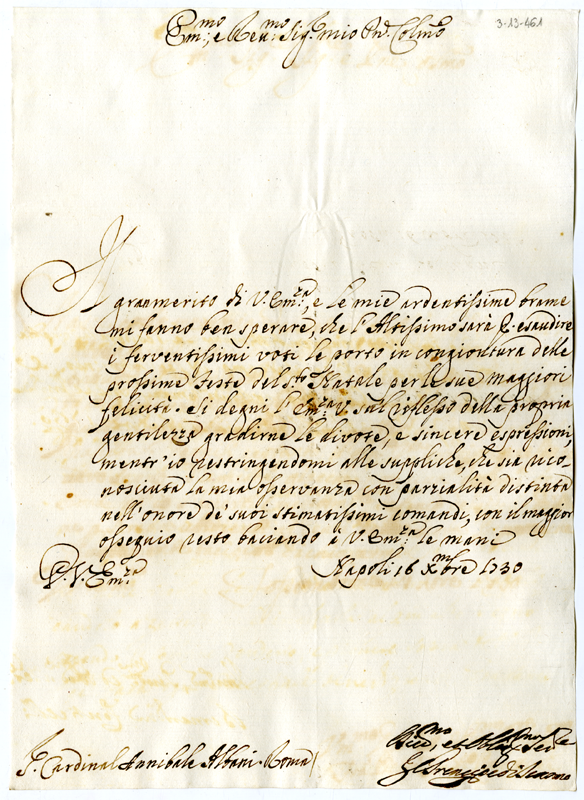 3-13-461
Em.mo, e Reu.mo Sig.r mio Pn.e Colmo
Il gran merito di V. Em.za, e le mie ardentissime brame
mi fanno ben sperare, che l'Altissimo sarà p. esaudire
i ferventissimi voti le porto in congiontura delle
prossime feste del S.to Natale per le sue maggiori
felicità. Si degni l'Em.za V. sul riflesso della propria
gentilezza gradirne le divote, e sincere espressioni,
mentr'io restringendomi alle suppliche, che sia rico-
nosciuta la mia osservanza con parzialità distinta
nell'onore de' suoi stimatissimi comandi, con il maggior
ossequio resto baciando à V. Em.za le mani
D. V. Em.za Napoli 16 Xmbre 1730
S.r Cardinal Annibale Albani. Roma